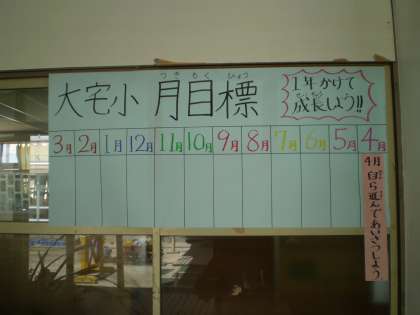 大宅小 月目標
つき もく ひょう
1年かけて
せいちょう
成長しよう!!
3月 2月 1月 12月 11月 10月 9月 8月 7月 6月 5月 4月
4月
自ら進んであいさつしよう